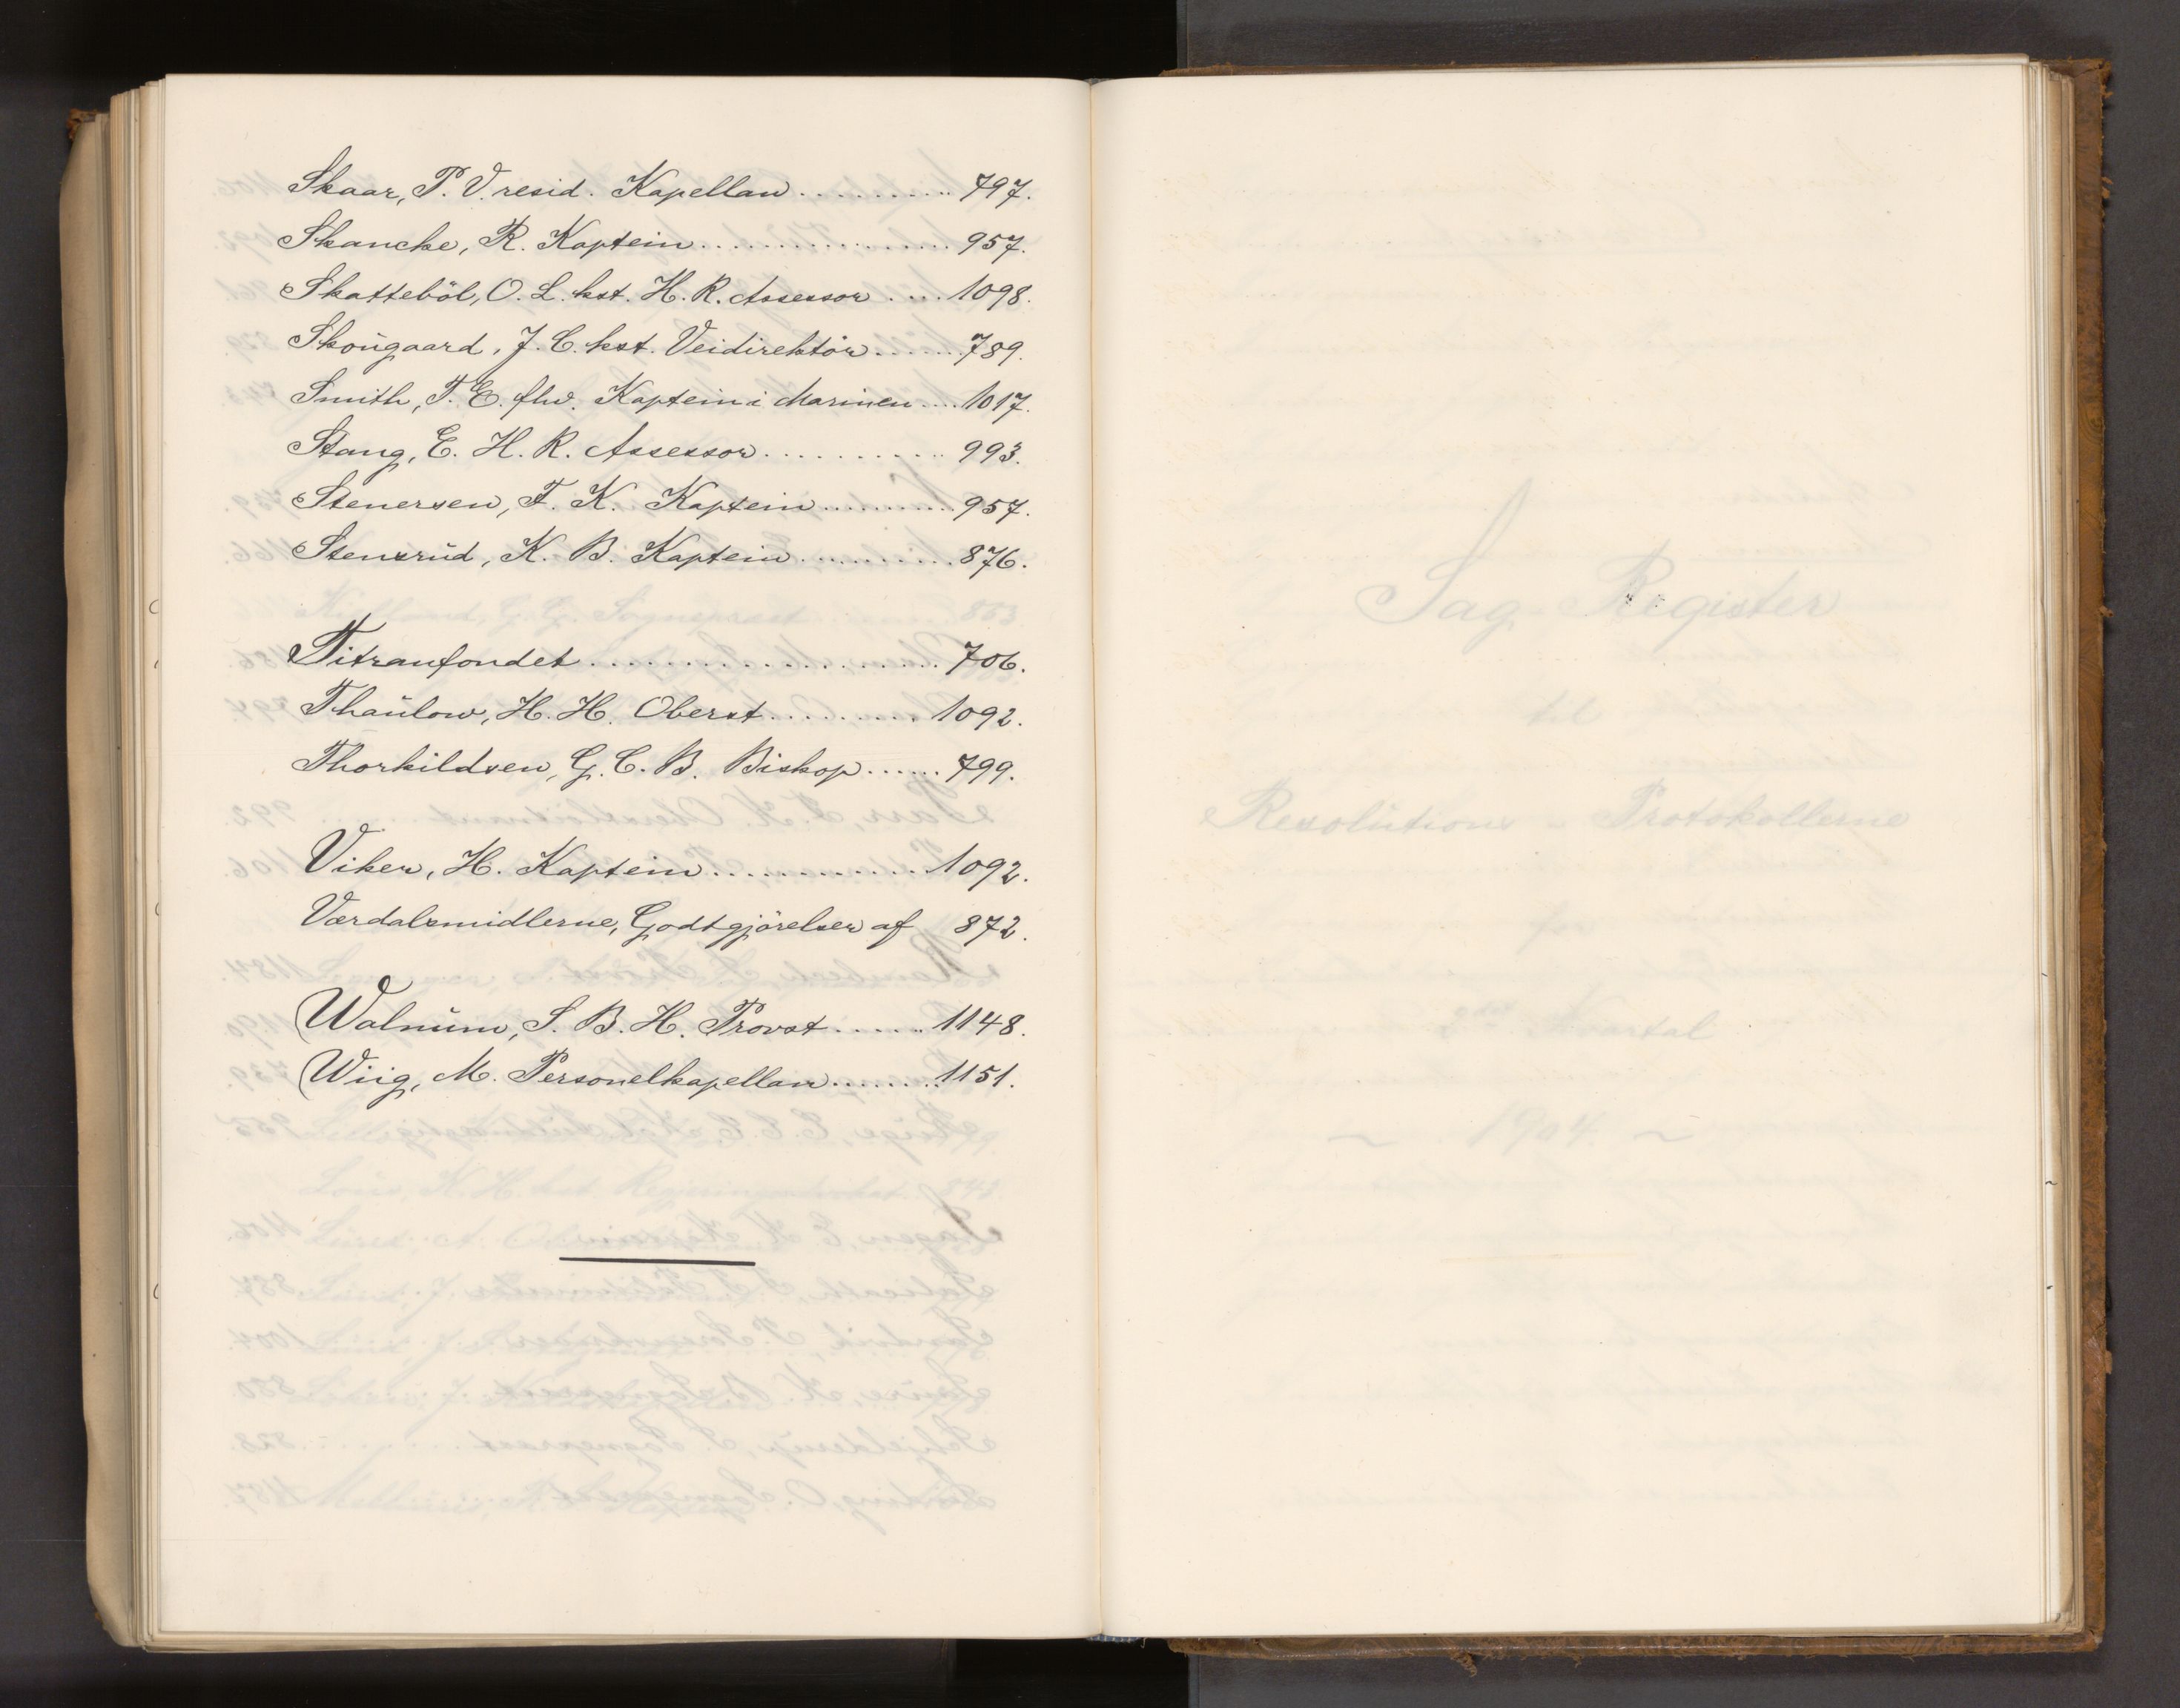 Skaar, P. V. resid. Kapellan .......... 797.
Skancke, R. Kaptein ................. 957.
Skattebôl, O. L. kst. H. R. Assessor .... 1098.
Skougaard, J. C. kst. Veidirektör ...... 789.
Smith, T. E. fhv. Kaptein i Marinen .... 1017.
Stang, E. H. R. Assessor ........... 993.
Stenersen, F. K. Kaptein .......... 957.
Stensrud, K. B. Kaptein .......... 876.
Titranfondet .................. 706.
Thaulow, H. H. Oberst ......... 1092.
Thorkildsen, G. C. B. Biskop ...... 799.
Viker, H. Kaptein ............. 1092.
Værdalsmidlerne, Godtgjörelser af 872.
Walnum, S. B. H. Provst ...... 1148.
Wiig, M. Personelkapellan ....... 1151.
Sag-Register
til
Resolutions-Protokollerne
for
2det Kvartal
~ 1904. ~